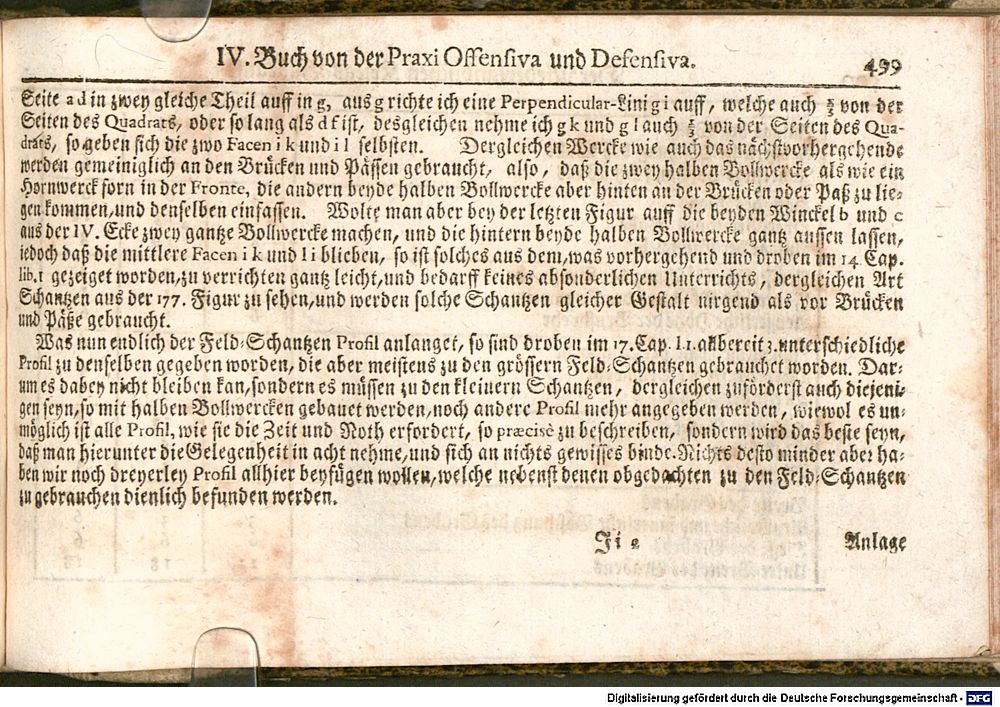 IV. Buch von der Praxi Offensiva und Defensiva. 499
Seite a d in zwey gleiche Theil auff in g, aus g richte ich eine Perpendicular-Lini g i auff, welche auch von der
Seiten des Quadrats, oder so lang als d f ist, desgleichen nehme ich g k und g l auch von der Seiten des Qua-
drats, so geben sich die zwo Facen i k und i l selbsten. Dergleichen Wercke wie auch das nächstvorhergehende
werden gemeiniglich an den Brücken und Pässen gebraucht, also, daß die zwey halben Vollwercke als wie ein
Hornwerck forn in der Fronte, die andern beyde halben Vollwercke aber hinten an der Brücken oder Paß zu lie-
gen kommen, und denselben einfassen. Wolte man aber bey der letzten Figur auff die beyden Winckel b und c
aus der IV. Ecke zwey gantze Vollwercke machen, und die hintern beyde halben Vollwercke gantz aussen lassen,
jedoch daß die mittlere Facen i k und l i blieben, so ist solches aus dem, was vorhergehend und droben im 14 Cap.
lib. 1 gezeiget worden, zu verrichten gantz leicht, und bedarff keines absonderlichen Unterrichts, dergleichen Art
Schantzen aus der 177. Figur zu sehen, und werden solche Schantzen gleicher Gestalt nirgend als vor Brücken
und Päße gebraucht.
Was nun endlich der Feld-Schantzen Profil anlanget, so sind droben im 17. Cap. l. 1. allbereit 3. unterschiedliche
Profil zu denselben gegeben worden, die aber meistens zu den grössern Feld-Schantzen gebrauchet worden. Dar-
um es dabey nicht bleiben kan, sondern es müssen zu den kleinern Schantzen, dergleichen zuförderst auch diejeni-
gen seyn, so mit halben Vollwercken gebauet werden, noch andere Profil mehr angegeben werden, wiewol es un-
möglich ist alle Profil, wie sie die Zeit und Noth erfordert, so præcisè zu beschreiben, sondern wird das beste seyn,
daß man hierunter die Gelegenheit in acht nehme, und sich an nichts gewisses binde. Nichts desto minder aber ha-
ben wir noch dreyerley Profil allhier beyfügen wollen, welche nebenst denen obgedachten zu den Feld-Schantzen
zu gebrauchen dienlich befunden werden.
Ji 2 Anlage
Digitalisierung gefördert durch die Deutsche Forschungsgemeinschaft - DFG